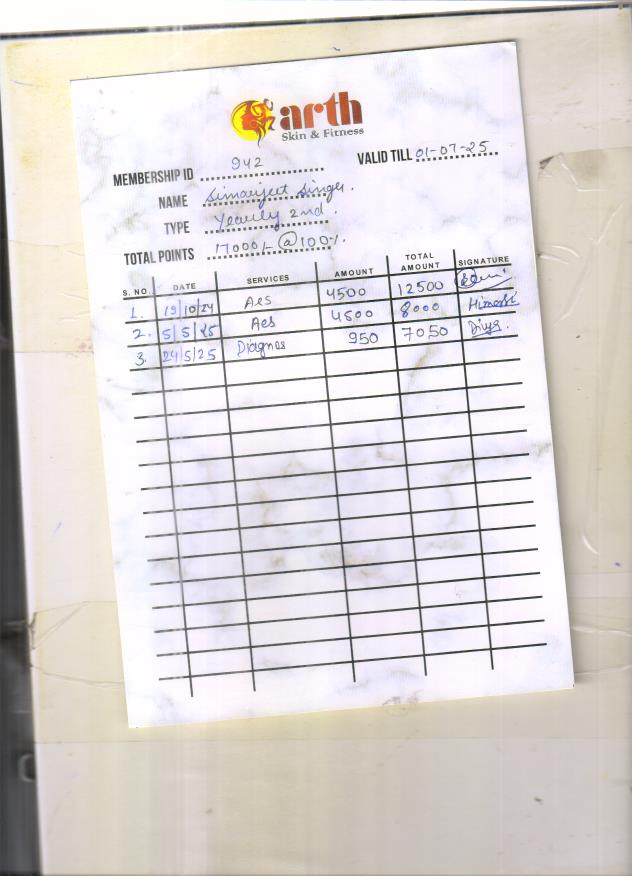 arth
Skin & Fitness
MEMBERSHIP ID 942
VALID TILL 01-07-25
NAME Simarjeet Singh.
TYPE Yearly 2nd.
TOTAL POINTS 17000/- @ 100%.
S. NO. DATE SERVICES AMOUNT TOTAL AMOUNT SIGNATURE
1. 19/10/24 Aes 4500 12500
2. 5/5/25 Aes 4500 8000 Himanshi
3. 24/5/25 Diagnos 950 7050 Divya.